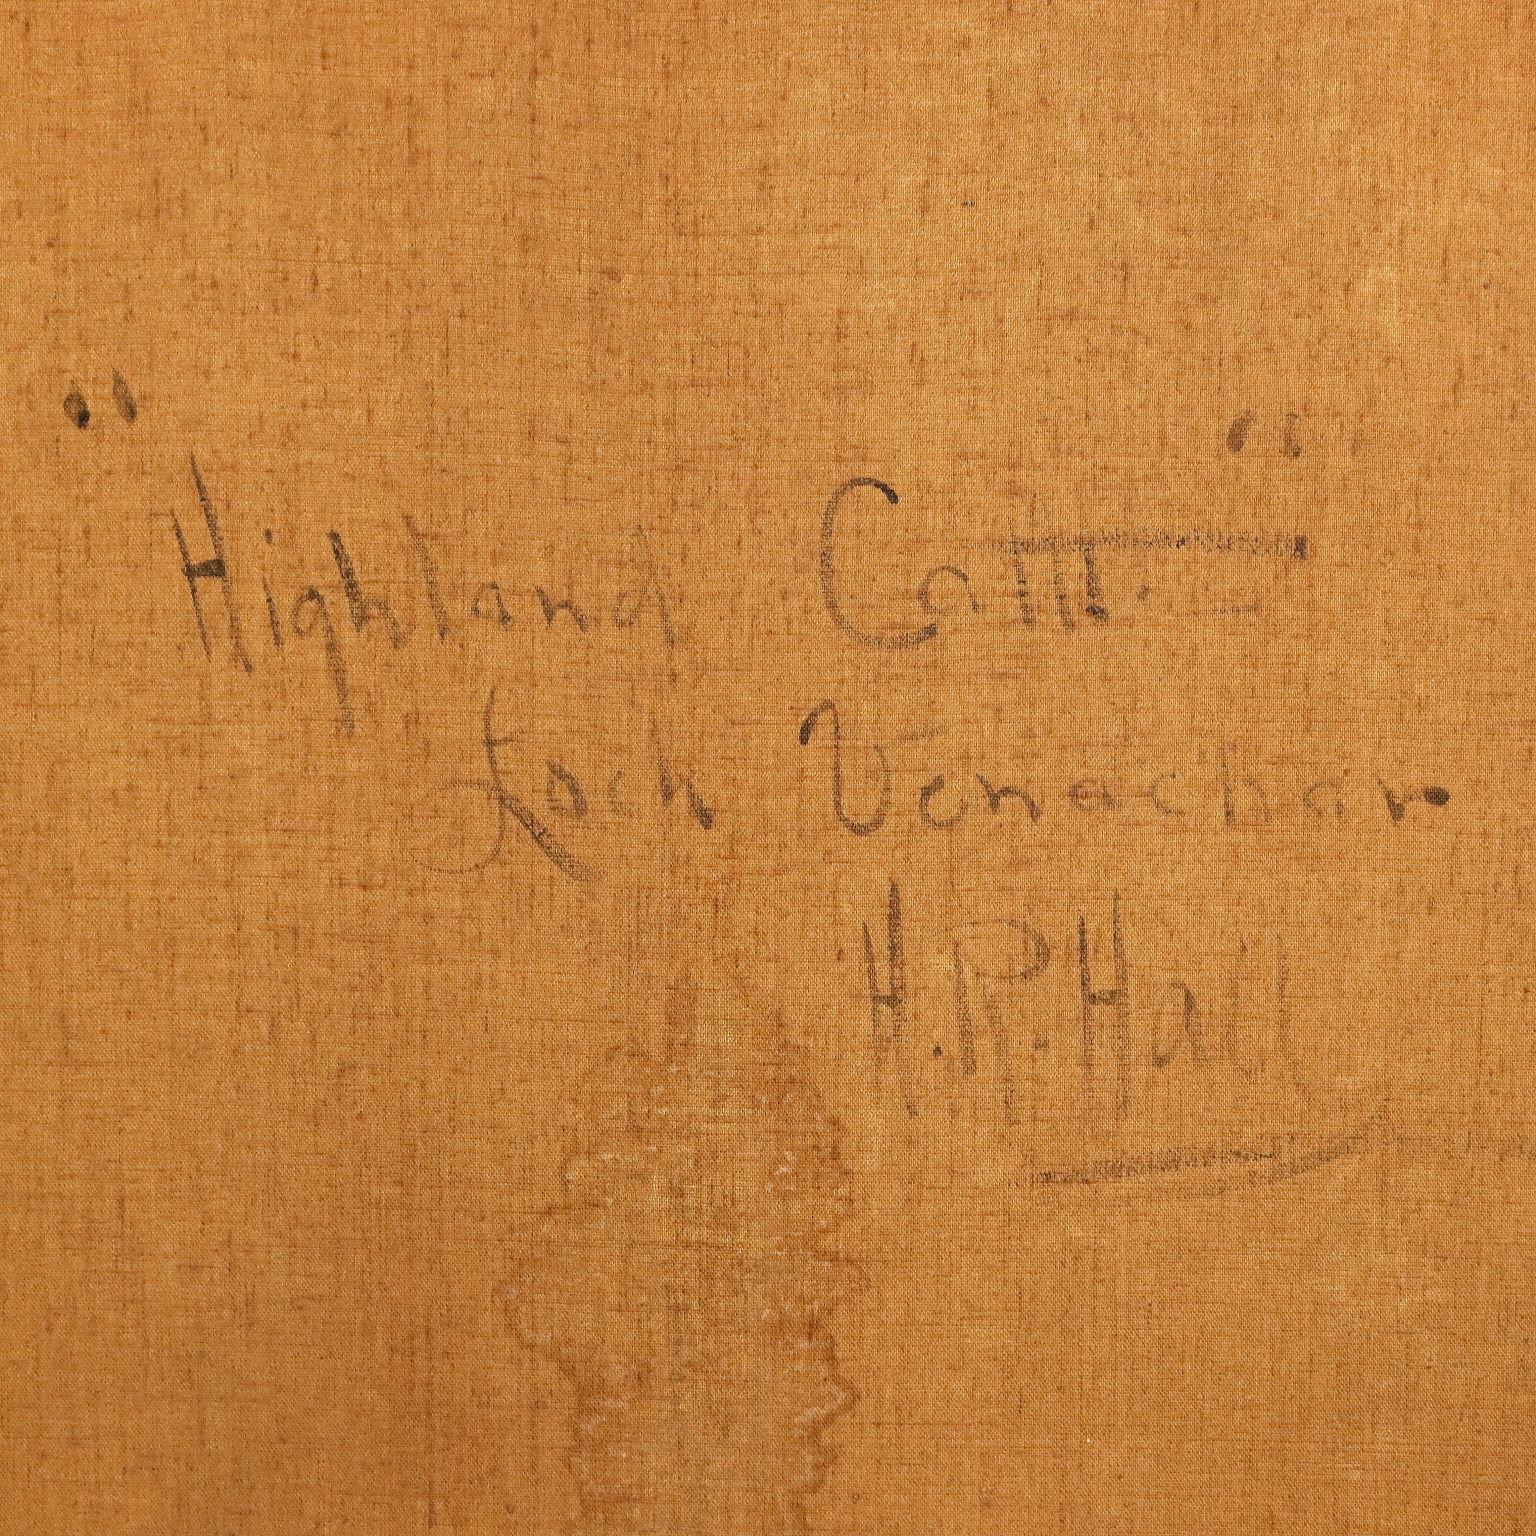 "Highland Cattl."
Loch Venachar.
H.R. Hall